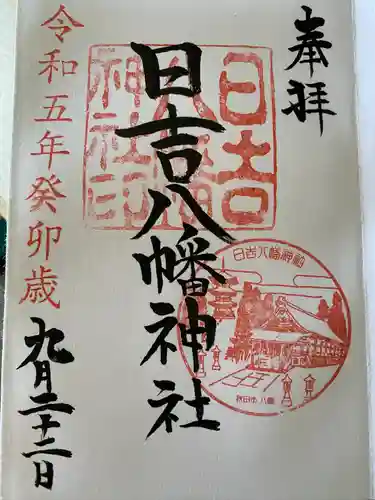 奉拝
日吉八幡神社
日吉八幡神社印
日吉八幡神社
秋田市 八橋
令和五年癸卯歳
九月二十二日